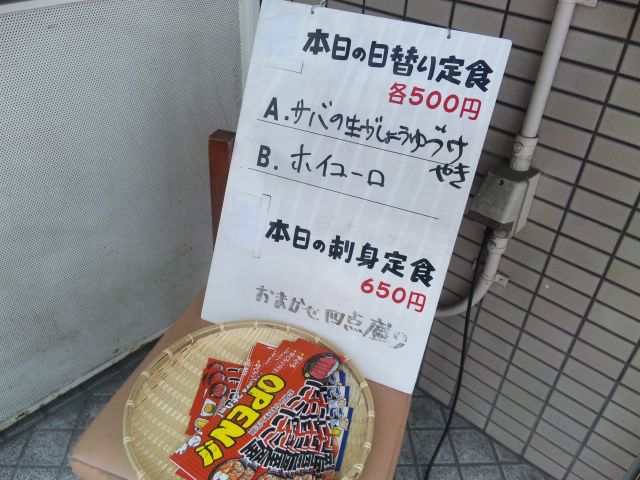 本日の日替り定食
各500円
A.サバの生がしょうゆづけ
やき
B.ホイコーロ
本日の刺身定食
650円
おまかせ四点盛り
OPEN!!